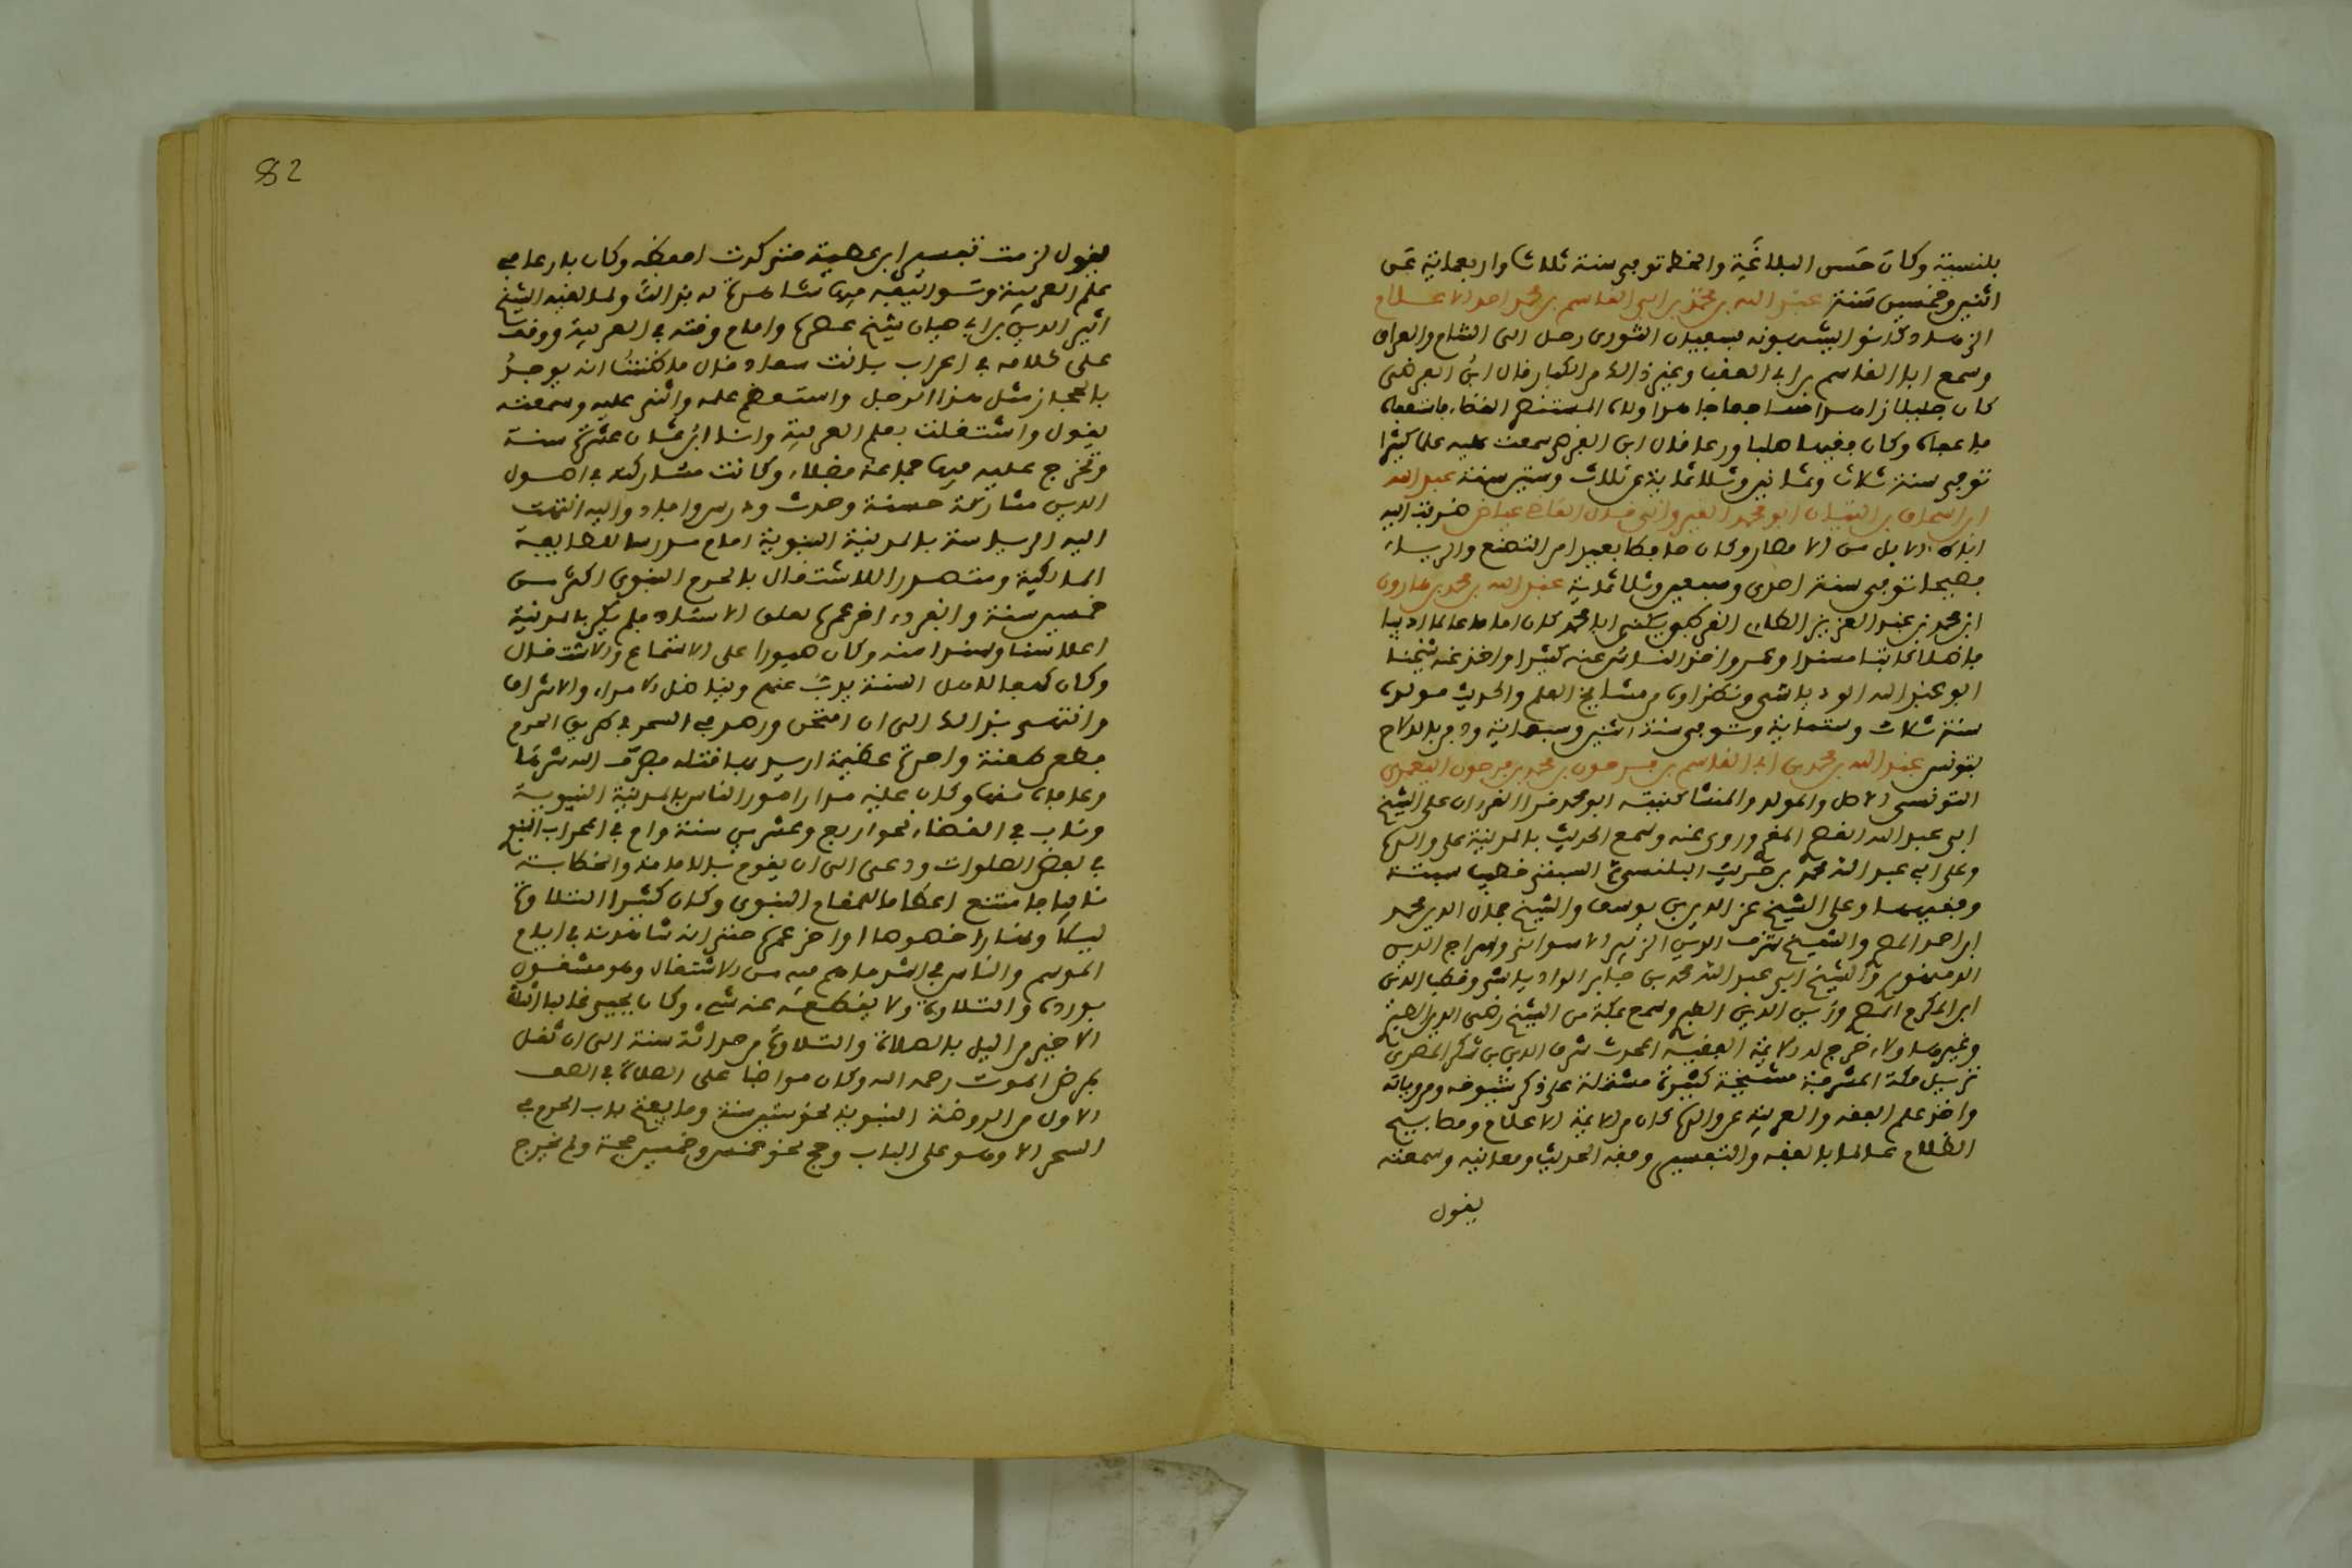 بلنسية وكان حسن البلاغة والخط توفي سنة ثلاث واربعماية عن
اثنين وخمسين سنة عبد الله بن محمد بن ابي القاسم بن محمد احد الاعلام
الزهاد كانوا يشبهونه بسفيان الثوري رحل الى الشام والعراق
وسمع ابا القاسم بن ابي العقب وغير ذلك من الكبار قال ابن الفرضي
كان جليلا زاهدا شجاعا مجاهدا ولاه المستنصر القضاء فاستعفاه
فاعفاه وكان فقيها صلبا ورعا قال ابن الفرضي سمعت عليه علما كثيرا
توفي سنة ثلاث وثمانين وثلاثماية عن ثلاث وستين سنة عبد الله
ابن اسحاق بن التبان ابو محمد القيرواني قال القاضي عياض ضربت اليه
اباط الابل من الامصار وكان حافظا بعيدا من التصنع والرياء
فصيحا توفي سنة احدى وسبعين وثلاثماية عبد الله بن محمد بن هارون
ابن محمد بن عبد العزيز الطائي القرطبي يكنى ابا محمد كان اماما عالما اديبا
فاضلا كاتبا مسندا وعمر واخذ الناس عنه كثيرا واخذ عنه شيخنا
ابو عبد الله الوادياشي ونظراؤه من مشايخ العلم والحديث مولده
سنة ثلاث وستماية وتوفي سنة اثنين وسبعماية ودفن بالزلاج
بتونس عبد الله بن محمد بن ابي القاسم بن فرحون بن محمد بن فرحون اليعمري
التونسي الاصل والمولد والمنشا كنيته ابو محمد قرا القران على الشيخ
ابي عبد الله القصري المقري وروى عنه وسمع الحديث بالمدينة على والده
وعلى ابي عبد الله محمد بن حريث البلنسي ثم السبتي خطيب سبتة
وفقيهها وعلى الشيخ عز الدين بن يوسف والشيخ جمال الدين محمد
ابن احمد المطري والشيخ شرف الدين الزبير الاسواني وسراج الدين
الدمنهوري والشيخ ابي عبد الله محمد بن جابر الوادياشي وقطب الدين
ابن المكرم المصري وزين الدين الطبري وسمع بمكة من الشيخ رضي الدين الطبري
وغير هاولاء خرج له الايمة الفقيه المحدث شرف الدين بن سكر المصري
نزيل مكة المشرفة مشيخة كبيرة مشتملة على ذكر شيوخه ومروياته
واخذ علم الفقه والعربية عن والده كان من الايمة الاعلام ومصابيح
الظلام عالما بالفقه والتفسير وفقه الحديث ومعانيه وسمعته
يقول
82
يقول لازمت تفسير ابن عطية حتى كدت احفظه وكان بارعا في
علم العربية وشواليعه فيها شاهدة له بذالك ولما لقيه الشيخ
اثير الدين بن ابي حيان شيخ عصره وامام وقته في العربية ووقف
على كلامه في اعراب بانت سعاد قال ما ظننت انه يوجد
بالحجاز مثل هذا الرجل واستعظم علمه واثنى عليه وسمعته
يقول واشتغلت بعلم العربية وانا ابن ثمان عشرة سنة
وتخرج عليه فيها جماعة فضلاء وكانت مشاركته في اصول
الدين مشاركة حسنة وحدث ودرس وافاد واليه انتهت
اليه الرياسة بالمدينة النبوية اقام مدرسا للطايفة
المالكية ومتصدرا للاشتغال بالحرم النبوي اكثر من
خمسين سنة وانفرد اخر عمره بعلو الاسناد فلم يكن بالمدينة
اعلا سنا وسندا منه وكان صبورا على الاسماع والاشتغال
وكان كهفا لاهل السنة يذب عنهم ويناضل الامراء والاشراف
وانتهى بذالك الى ان امتحن ورصد في السحر في طريق الحرم
فطعن طعنة واحدة عظيمة اريد بها قتله فصرف الله شرها
وعافاه منها وكان عليه مدار امور الناس بالمدينة النبوية
وناب في القضاء نحو اربع وعشرين سنة وام في المحراب النبوي
في بعض الصلوات ودعي الى ان يقوم بالامامة والخطابة
نايبا فامتنع اعظاما للمقام النبوي وكان كثير التلاوة
ليلا ونهارا خصوصا اواخر عمره حتى انه شاهدته في ايام
الموسم والناس في اشد ما هم فيه من الاشتغال وهو مشغول
بورده والتلاوة ولا يقطعه عنه شيء وكان يحيي غالبا الثلث
الاخير من اليل بالصلاة والتلاوة من حداثة سنه الى ان ثقل
بمرض الموت رحمه الله وكان مواظبا على الصلاة في الصف
الاول من الروضة النبوية نحو ستين سنة وما يفتح باب الحرم في
السحر الا وهو على الباب وحج نحو خمس وخمسين حجة ولم يخرج